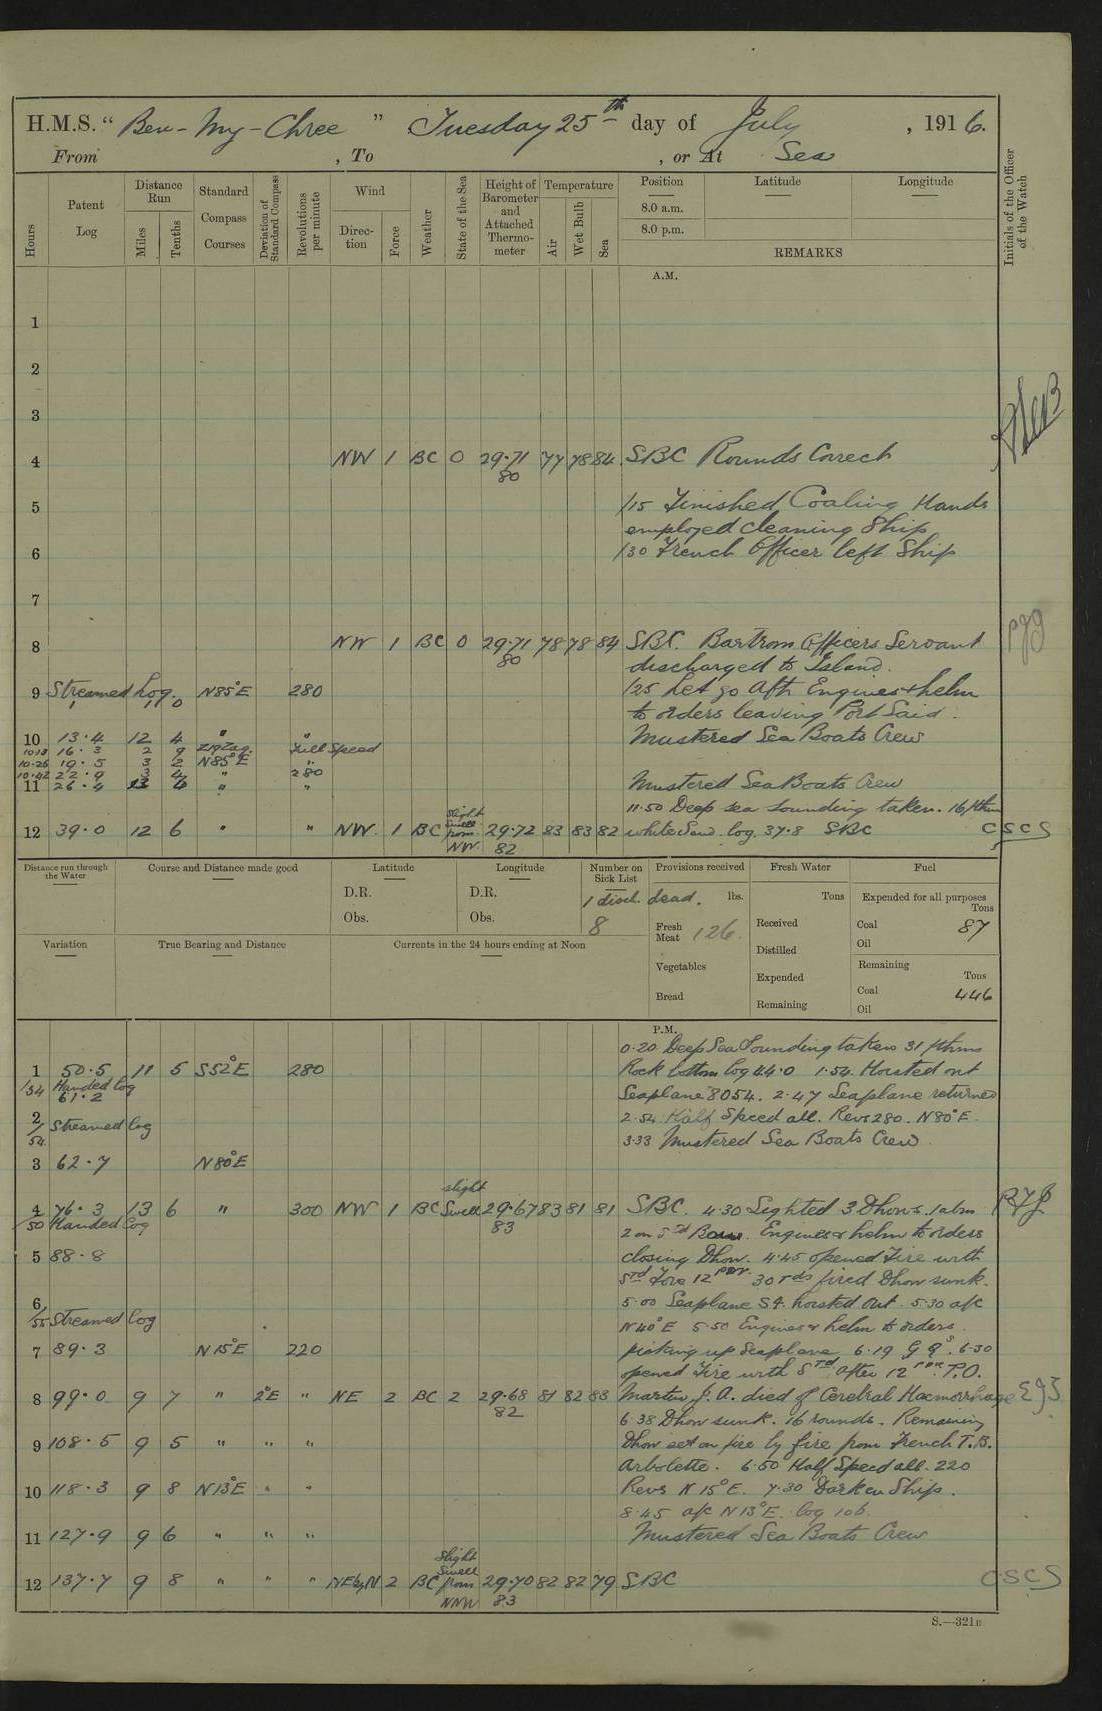 H.M.S. “ Ben-My-Chree ” Tuesday 25th day of July , 1916.
From , To , or At Sea
Hours
Patent Log
Distance Run
Miles
Tenths
Standard Compass Courses
Deviation of Standard Compass
Revolutions per minute
Wind
Direction
Force
Weather
State of the Sea
Height of Barometer and Attached Thermometer
Temperature
Air
Wet Bulb
Sea
Position
8.0 a.m.
8.0 p.m.
Latitude
Longitude
REMARKS
Initials of the Officer of the Watch
A.M.
1
2
3
4 NW 1 BC 0 29.71 77 78 84 SBC Rounds Correct
80
5 /15 Finished Coaling Hands
employed cleaning Ship
6 /30 French Officer left Ship
7
8 NW 1 BC 0 29.71 78 78 84 SBC. Bartrom Officers Servant
80 discharged to Island.
9 Streamed Log N85°E 280 /25 Let go Aft Engines & helm
1 11 0 to orders leaving Port Said.
10 13.4 12 4 " " Mustered Sea Boats Crew
10.13 16.3 2 9 ZigZag. Full Speed
10.26 19.5 3 2 N85°E "
10.42 22.9 3 4 " 280
11 26.4 13 4 " " Mustered Sea Boats Crew
11.50 Deep sea sounding taken. 16 fthm
12 39.0 12 6 " " NW. 1 BC slight Swell from NW. 29.72 83 83 82 white Sand. log. 37.8 SBC CSCS
82
Distance run through the Water
Course and Distance made good
Latitude
D.R.
Obs.
Longitude
D.R.
Obs.
Number on Sick List
1 disch. dead.
8
Provisions received
lbs.
Fresh Meat 126.
Vegetables
Bread
Fresh Water
Tons
Received
Distilled
Expended
Remaining
Fuel
Expended for all purposes
Tons
Coal 87
Oil
Remaining
Tons
Coal 446
Oil
Variation
True Bearing and Distance
Currents in the 24 hours ending at Noon
P.M.
0.20 Deep Sea Sounding taken 31 fthms
1 50.5 11 5 S52°E 280 Rock bottom log 44.0 1.54. Hoisted out
1/54 Handed Log
61.2 Seaplane 8054. 2.47 Seaplane returned
2/54 Streamed log 2.54 Half Speed all. Revs 280. N80°E.
3.33 Mustered Sea Boats Crew.
3 62.7 N80°E
4 76.3 13 6 " 300 NW 1 BC slight Swell 29.67 83 81 81 SBC. 4.30 Sighted 3 Dhows. 1 abm
/50 Handed Log 83 2 on Std Bow. Engines & helm to orders
5 88.8 closing Dhow. 4.45 opened Fire with
Std Fore 12 pdr. 30 rds fired Dhow sunk.
6 5.00 Seaplane S4. hoisted out. 5.30 a/c
/55 Streamed Log N40°E 5.50 Engines & helm to orders.
7 89.3 N15°E 220 picking up Seaplane. 6.19 G Qs. 6.30
opened Fire with Std after 12 pdr. P.O.
8 99.0 9 7 " 2°E " NE 2 BC 2 29.68 81 82 83 Martin J. A. died of Cerebral Haemorrhage
82 6.38 Dhow sunk. 16 rounds. Remaining
9 108.5 9 5 " " " Dhow set on fire by fire from French T.B.
Arbolette. 6.50 Half Speed all. 220
10 118.3 9 8 N13°E " " Revs N15°E. 7.30 Darken Ship.
8.45 a/c N13°E. log 106.
11 127.9 9 6 " " " Mustered Sea Boats Crew
12 137.7 9 8 " " " NEbyN 2 BC Slight Swell from NNW 29.70 82 82 79 SBC CSCS
83
S.—321B